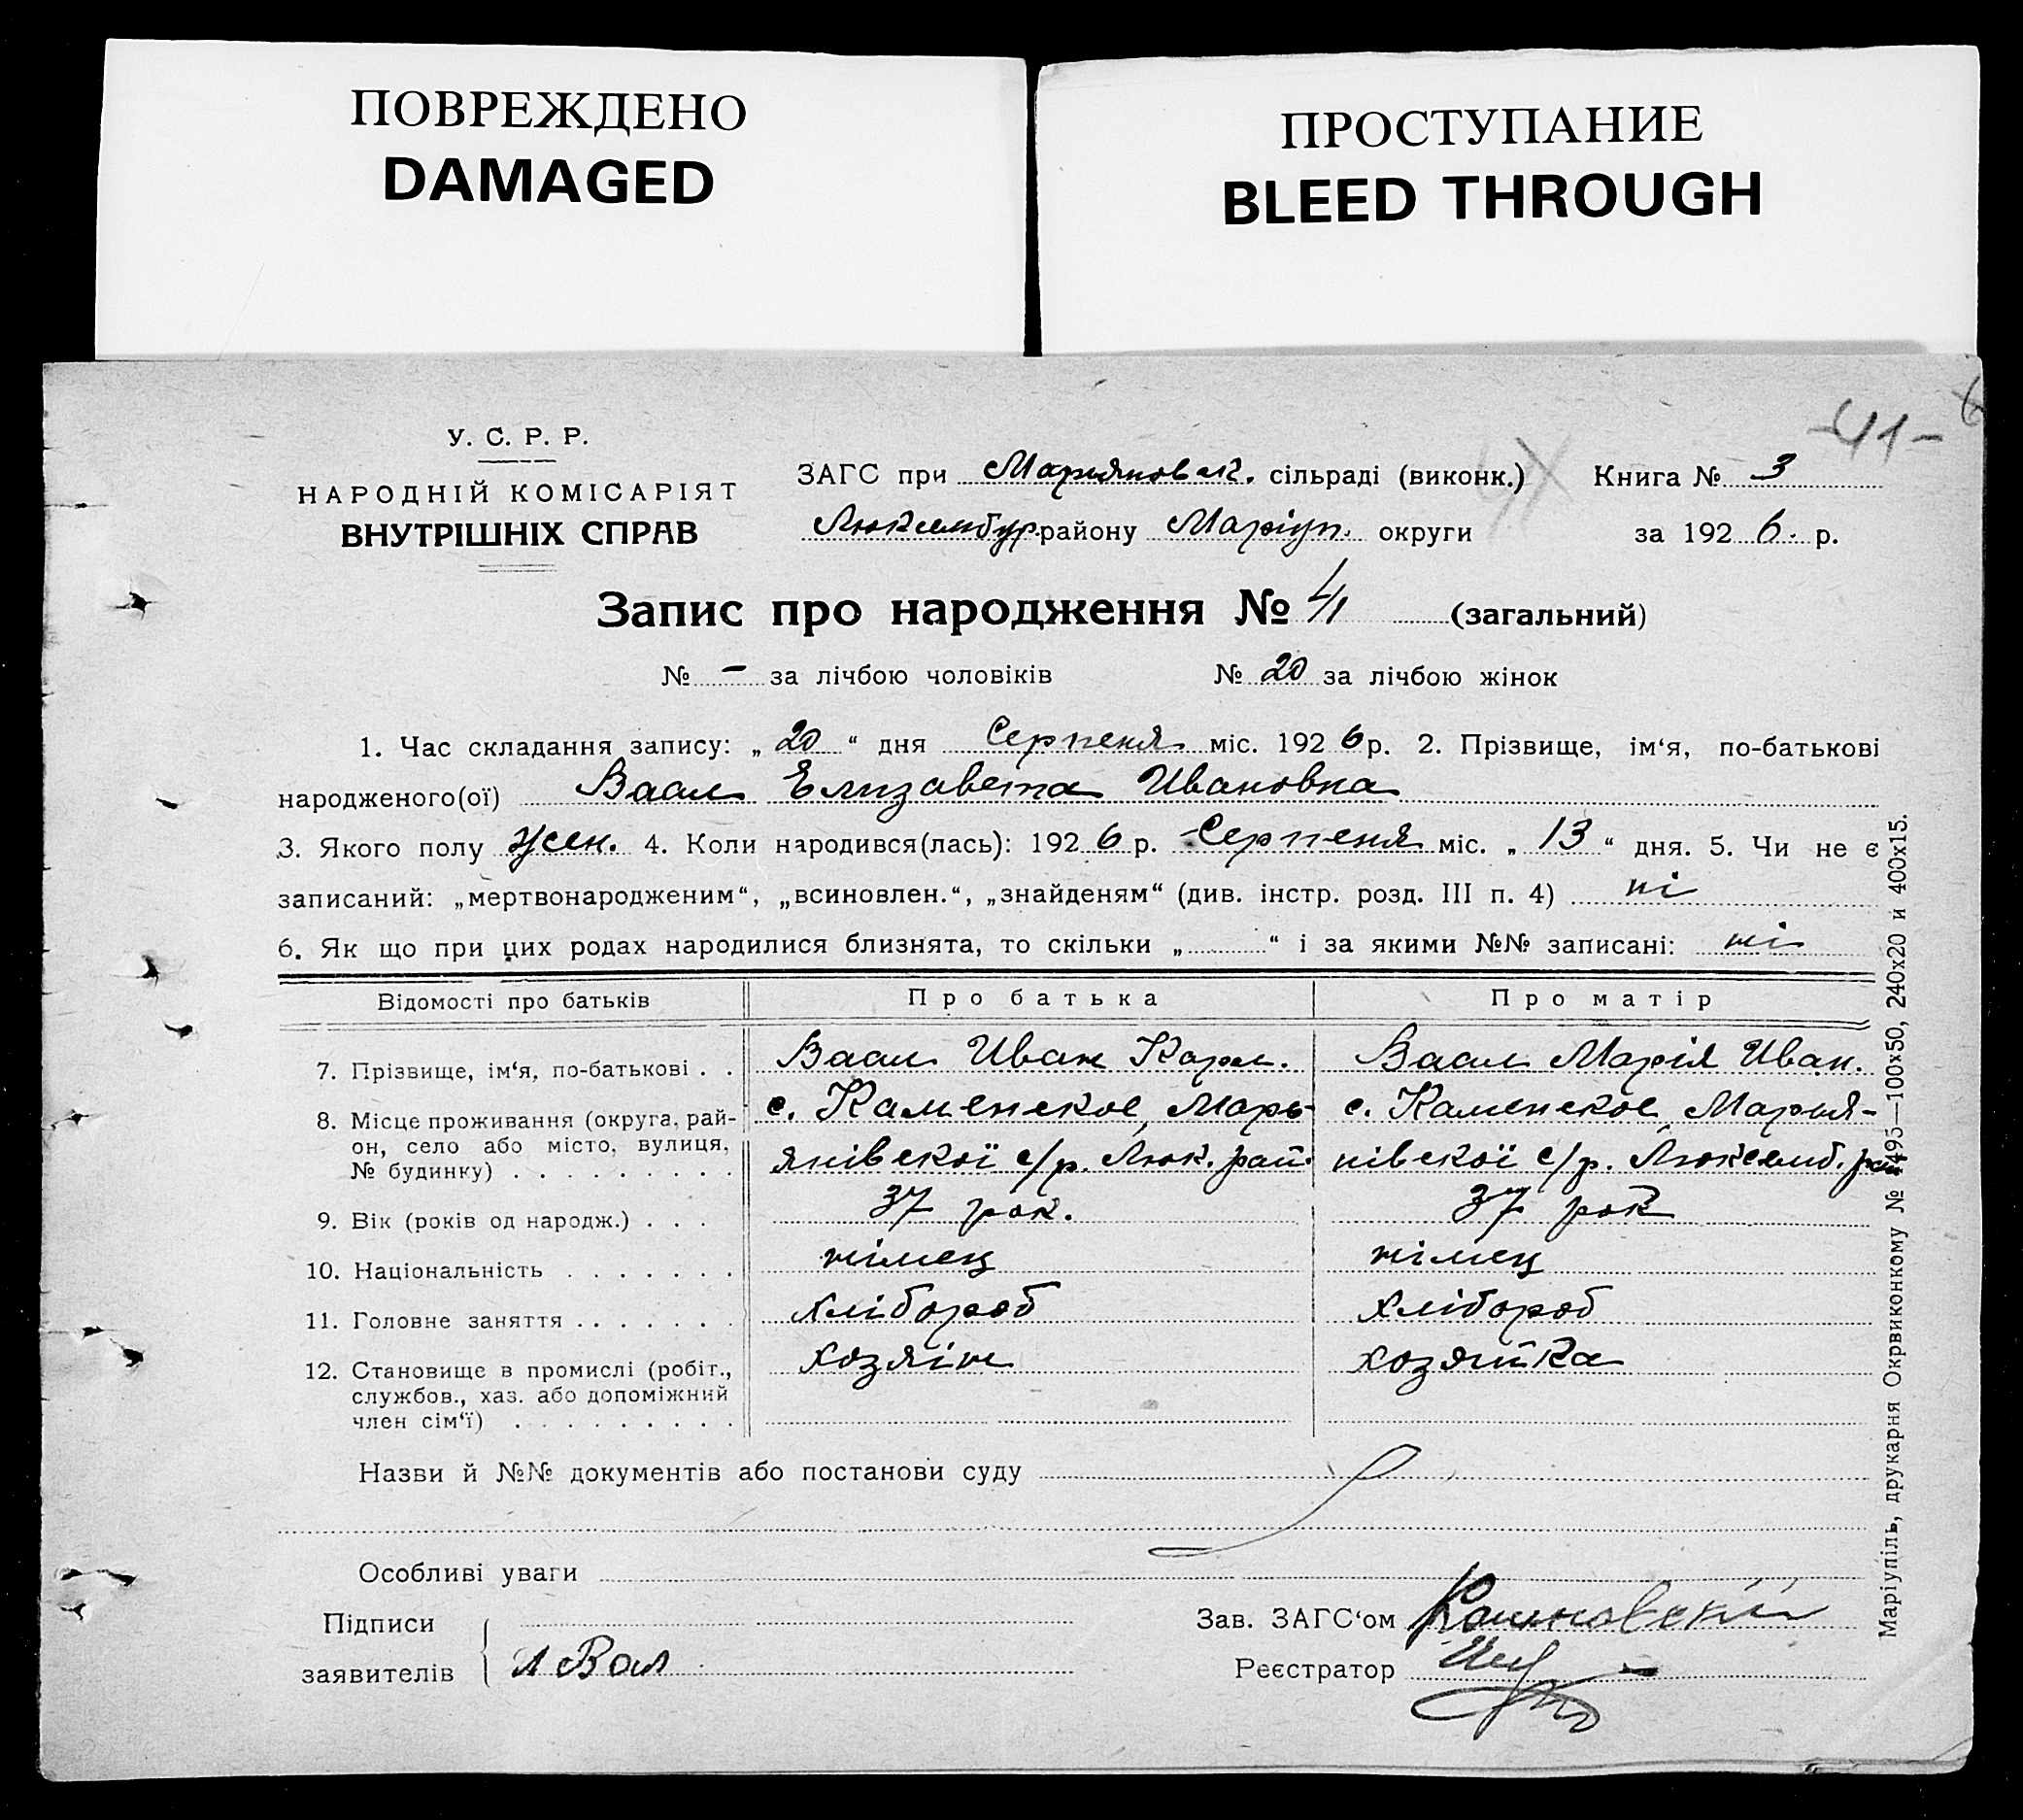 ПОВРЕЖДЕНО
DAMAGED
ПРОСТУПАНИЕ
BLEED THROUGH
-41-
У. С. Р. Р.
НАРОДНІЙ КОМІСАРІЯТ
ВНУТРІШНІХ СПРАВ
ЗАГС при Марьяновск. сільраді (виконк.) Книга № 3
Люксембур. району Маріуп. округи за 1926. р.
Запис про народження № 41 (загальний)
№ - за лічбою чоловіків № 20 за лічбою жінок
1. Час складання запису: „20“ дня Серпеня міс. 1926 р. 2. Прізвище, ім‘я, по-батькові
народженого(ої) Ваал Елизавета Ивановна
3. Якого полу жен. 4. Коли народився(лась): 1926 р. Серпеня міс. „13“ дня. 5. Чи не є
записаний: „мертвонародженим“, „всиновлен.“, „знайденям“ (див. інстр. розд. III п. 4) ні
6. Як що при цих родах народилися близнята, то скільки „ “ і за якими №№ записані: ні
Відомості про батьків Про батька Про матір
7. Прізвище, ім‘я, по-батькові . . Ваал Иван Карл. Ваал Марія Иван.
8. Місце проживання (округа, рай- с. Каменское, Марь- с. Каменское, Марья-
он, село або місто, вулиця, янівскої с/р. Люк. рай. нівскої с/р. Люксемб. рай
№ будинку) . . . . . . . .
9. Вік (років од народж.) . . . 37 рок. 37 рок
10. Національність . . . . . . . німец німец
11. Головне заняття . . . . . . . хлібороб хлібороб
12. Становище в промислі (робіт., хозяїн хозяйка
службов., хаз. або допоміжний
член сім‘ї) . . . . . . . . .
Назви й №№ документів або постанови суду
Особливі уваги
Підписи
заявителів
Зав. ЗАГС‘ом
Реєстратор
Маріупіль, друкарня Окрвиконкому № 495—100x50, 240x20 и 400x15.